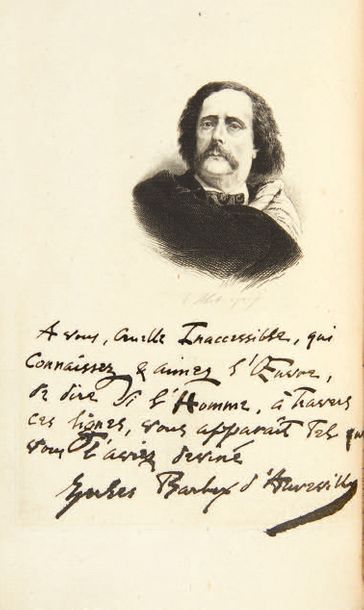 A vous, Cruelle Inaccessible, qui
Connaissez & aimez l'Œuvre,
de dire si l'Homme, à travers
ces lignes, vous apparaît Tel que
vous l'aviez deviné
Jules Barbey d'Aurevilly